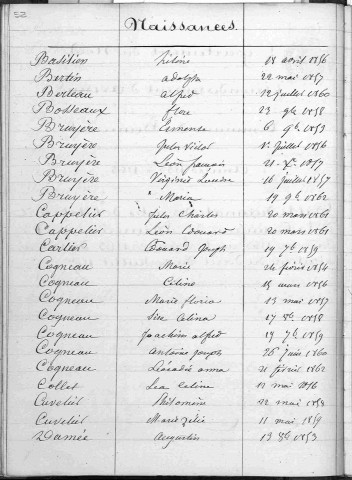 52
Naissances.
Bastien 18 avril 1856
Bertin adolph 22 mai 1857
Berteau alfred 12 juillet 1860
Bosseaux flore 23 9bre 1858
Bruyère Clemence 6 9bre 1853
Bruyère Jules Victor 1er juillet 1856
Bruyère Léon 21 Xbre 1857
Bruyère Virginie 16 juillet 1857
Bruyère " Maria 19 9bre 1862
Cappelier Jules Charles 20 mars 1861
Cappelier Léon Edouard 20 mars 1861
Cartier Edouard Joseph 19 7bre 1859
Cogneau Marie 24 février 1854
Cogneau Céline 18 mars 1856
Cogneau Marie floria 13 mai 1857
Cogneau Célina 17 8bre 1858
Cogneau Joachim alfred 19 7bre 1859
Cogneau Antoine Joseph 26 juin 1860
Cogneau Léocadie anna 21 février 1862
Collet Lea Celine 12 mai 1856
Cuvelier Philomène 22 mai 1858
Cuvelier Marie Zélie 11 mai 1859
Damée Augustin 19 8bre 1853